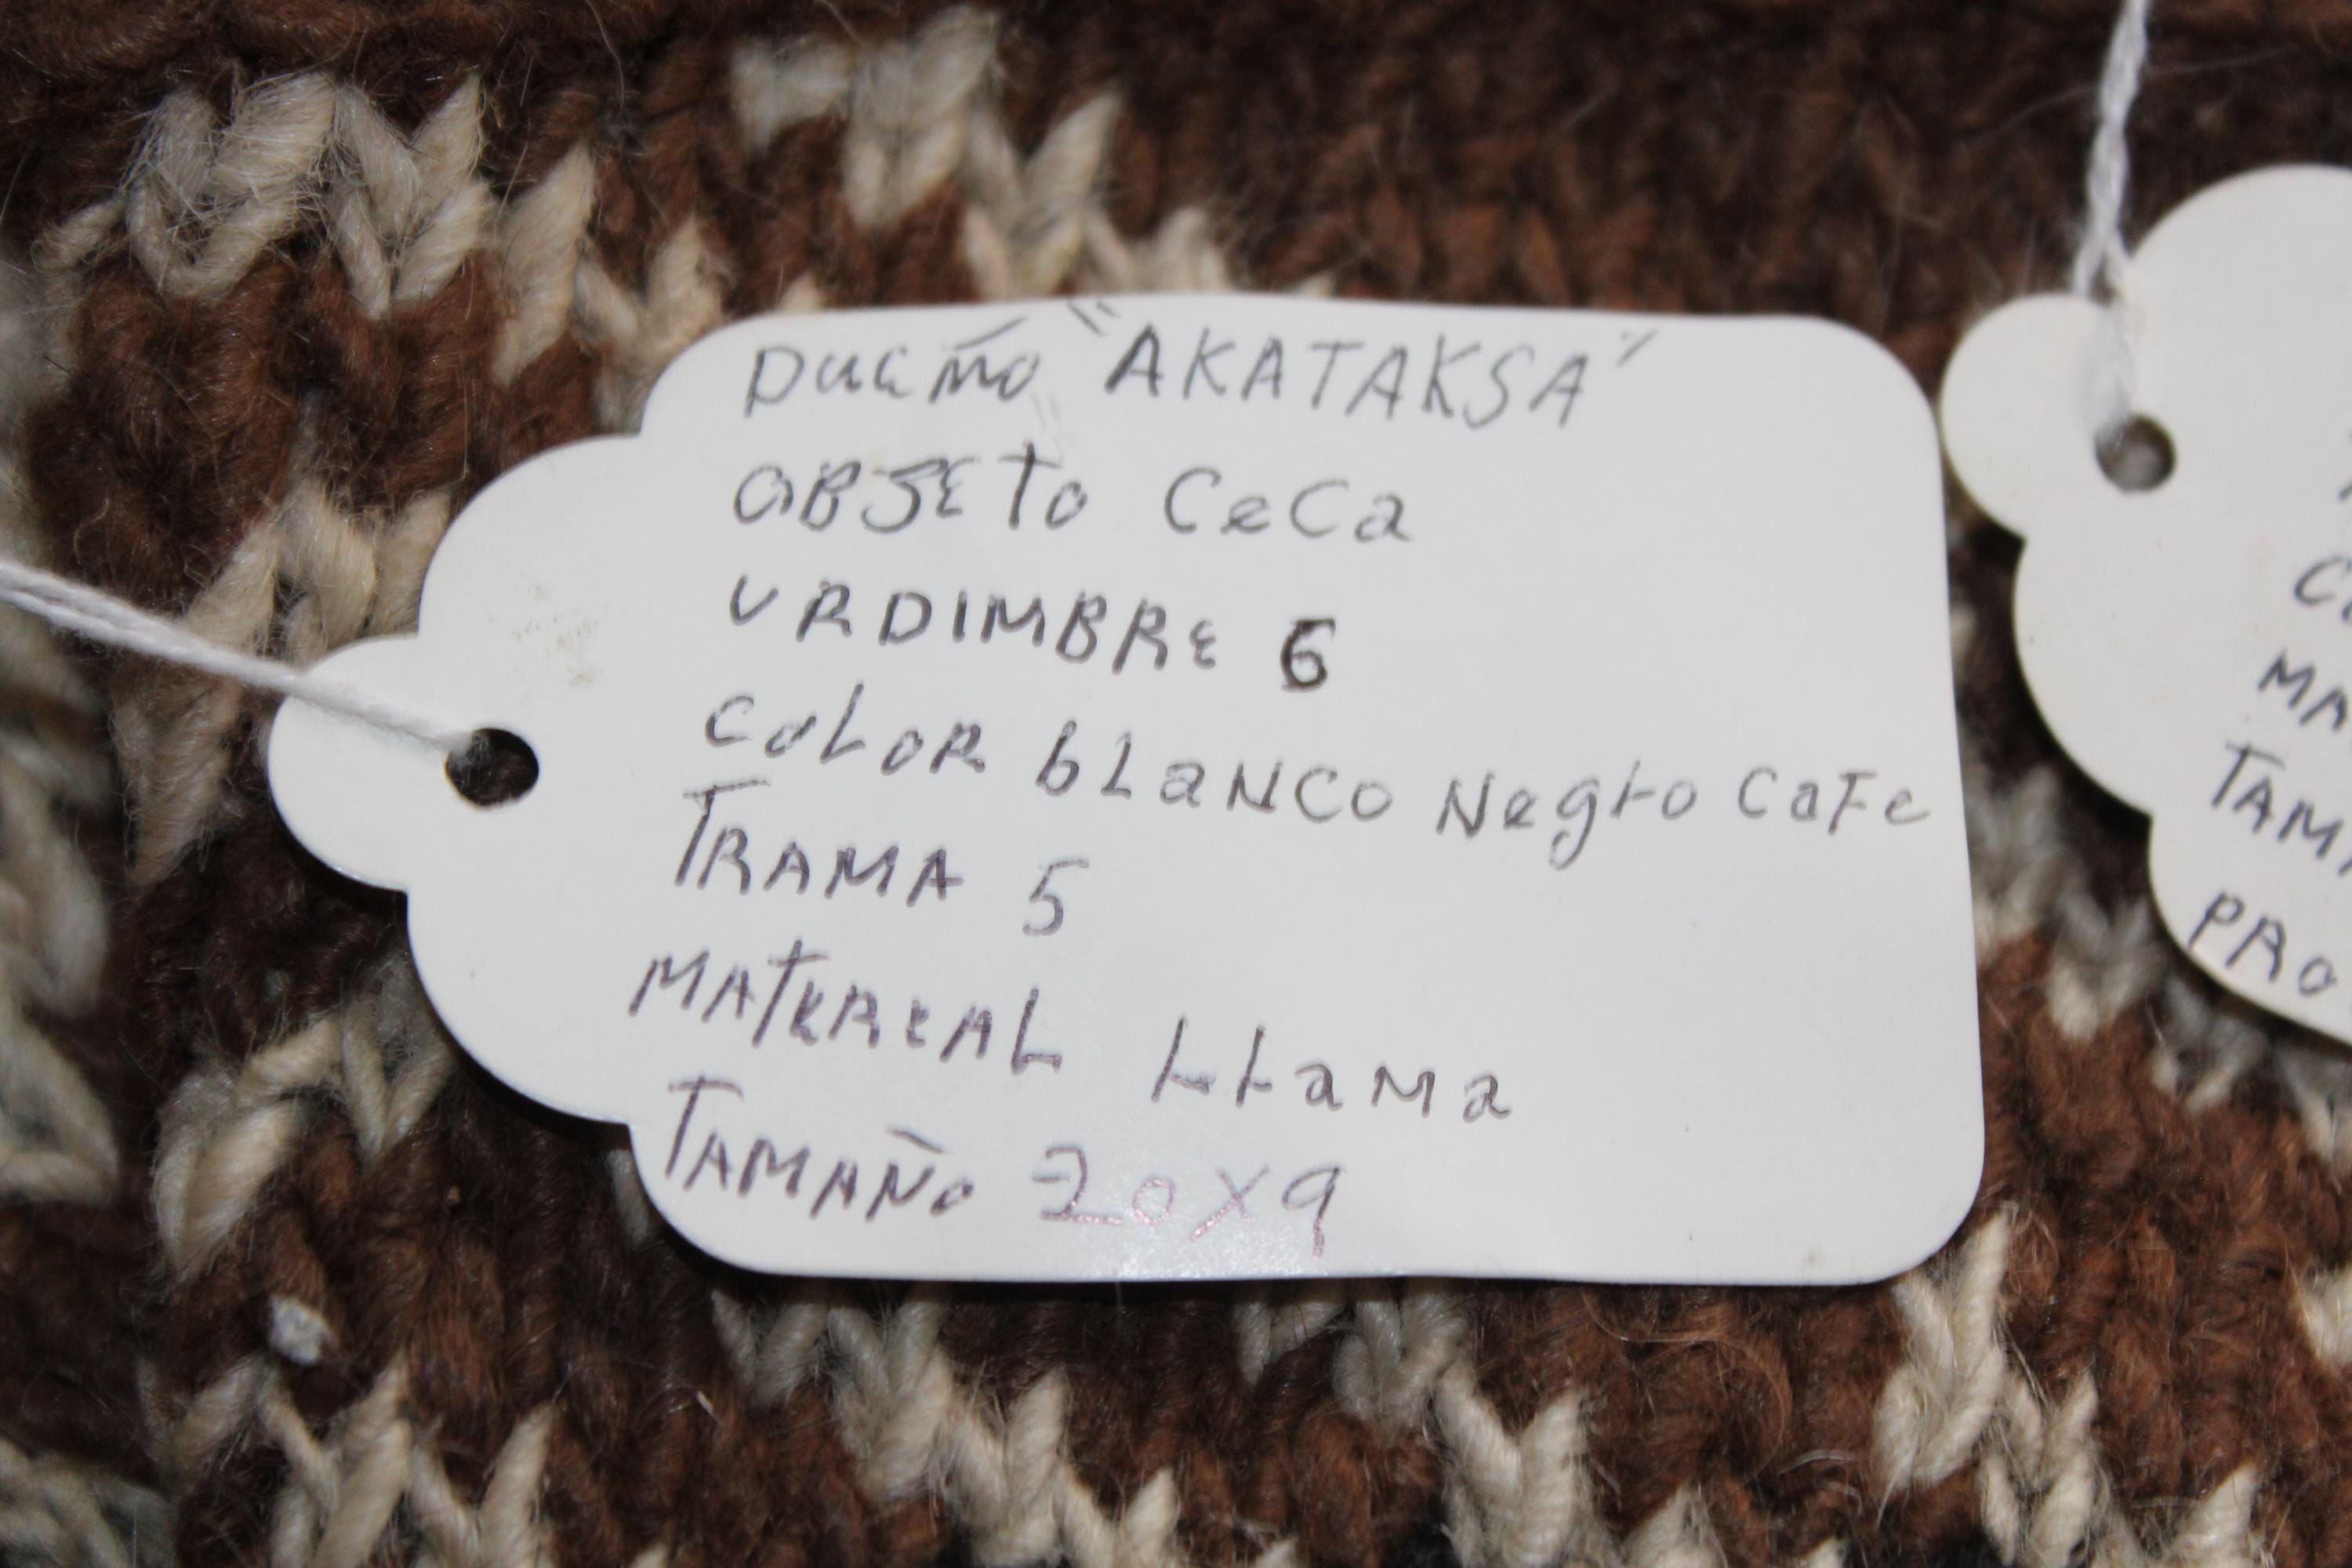 DUEÑO "AKATAKSA"
OBJETO CeCa
URDIMBRE 6
COLOR bLaNCo Negro CaFe
TRAMA 5
MATEREAL LLaMa
TAMAÑo 20X9
MA
TAM
PRO